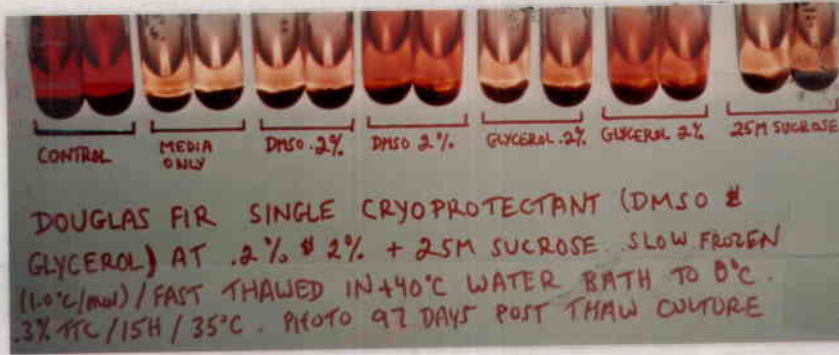 CONTROL
MEDIA ONLY
DMSO .2%
DMSO 2%
GLYCEROL .2%
GLYCEROL 2%
25M SUCROSE
DOUGLAS FIR SINGLE CRYOPROTECTANT (DMSO &
GLYCEROL) AT .2% & 2% + 25M SUCROSE. SLOW FROZEN
(1.0°C/min) / FAST THAWED IN +40°C WATER BATH TO 0°C.
.3% TTC / 15H / 35°C. PHOTO 97 DAYS POST THAW CULTURE